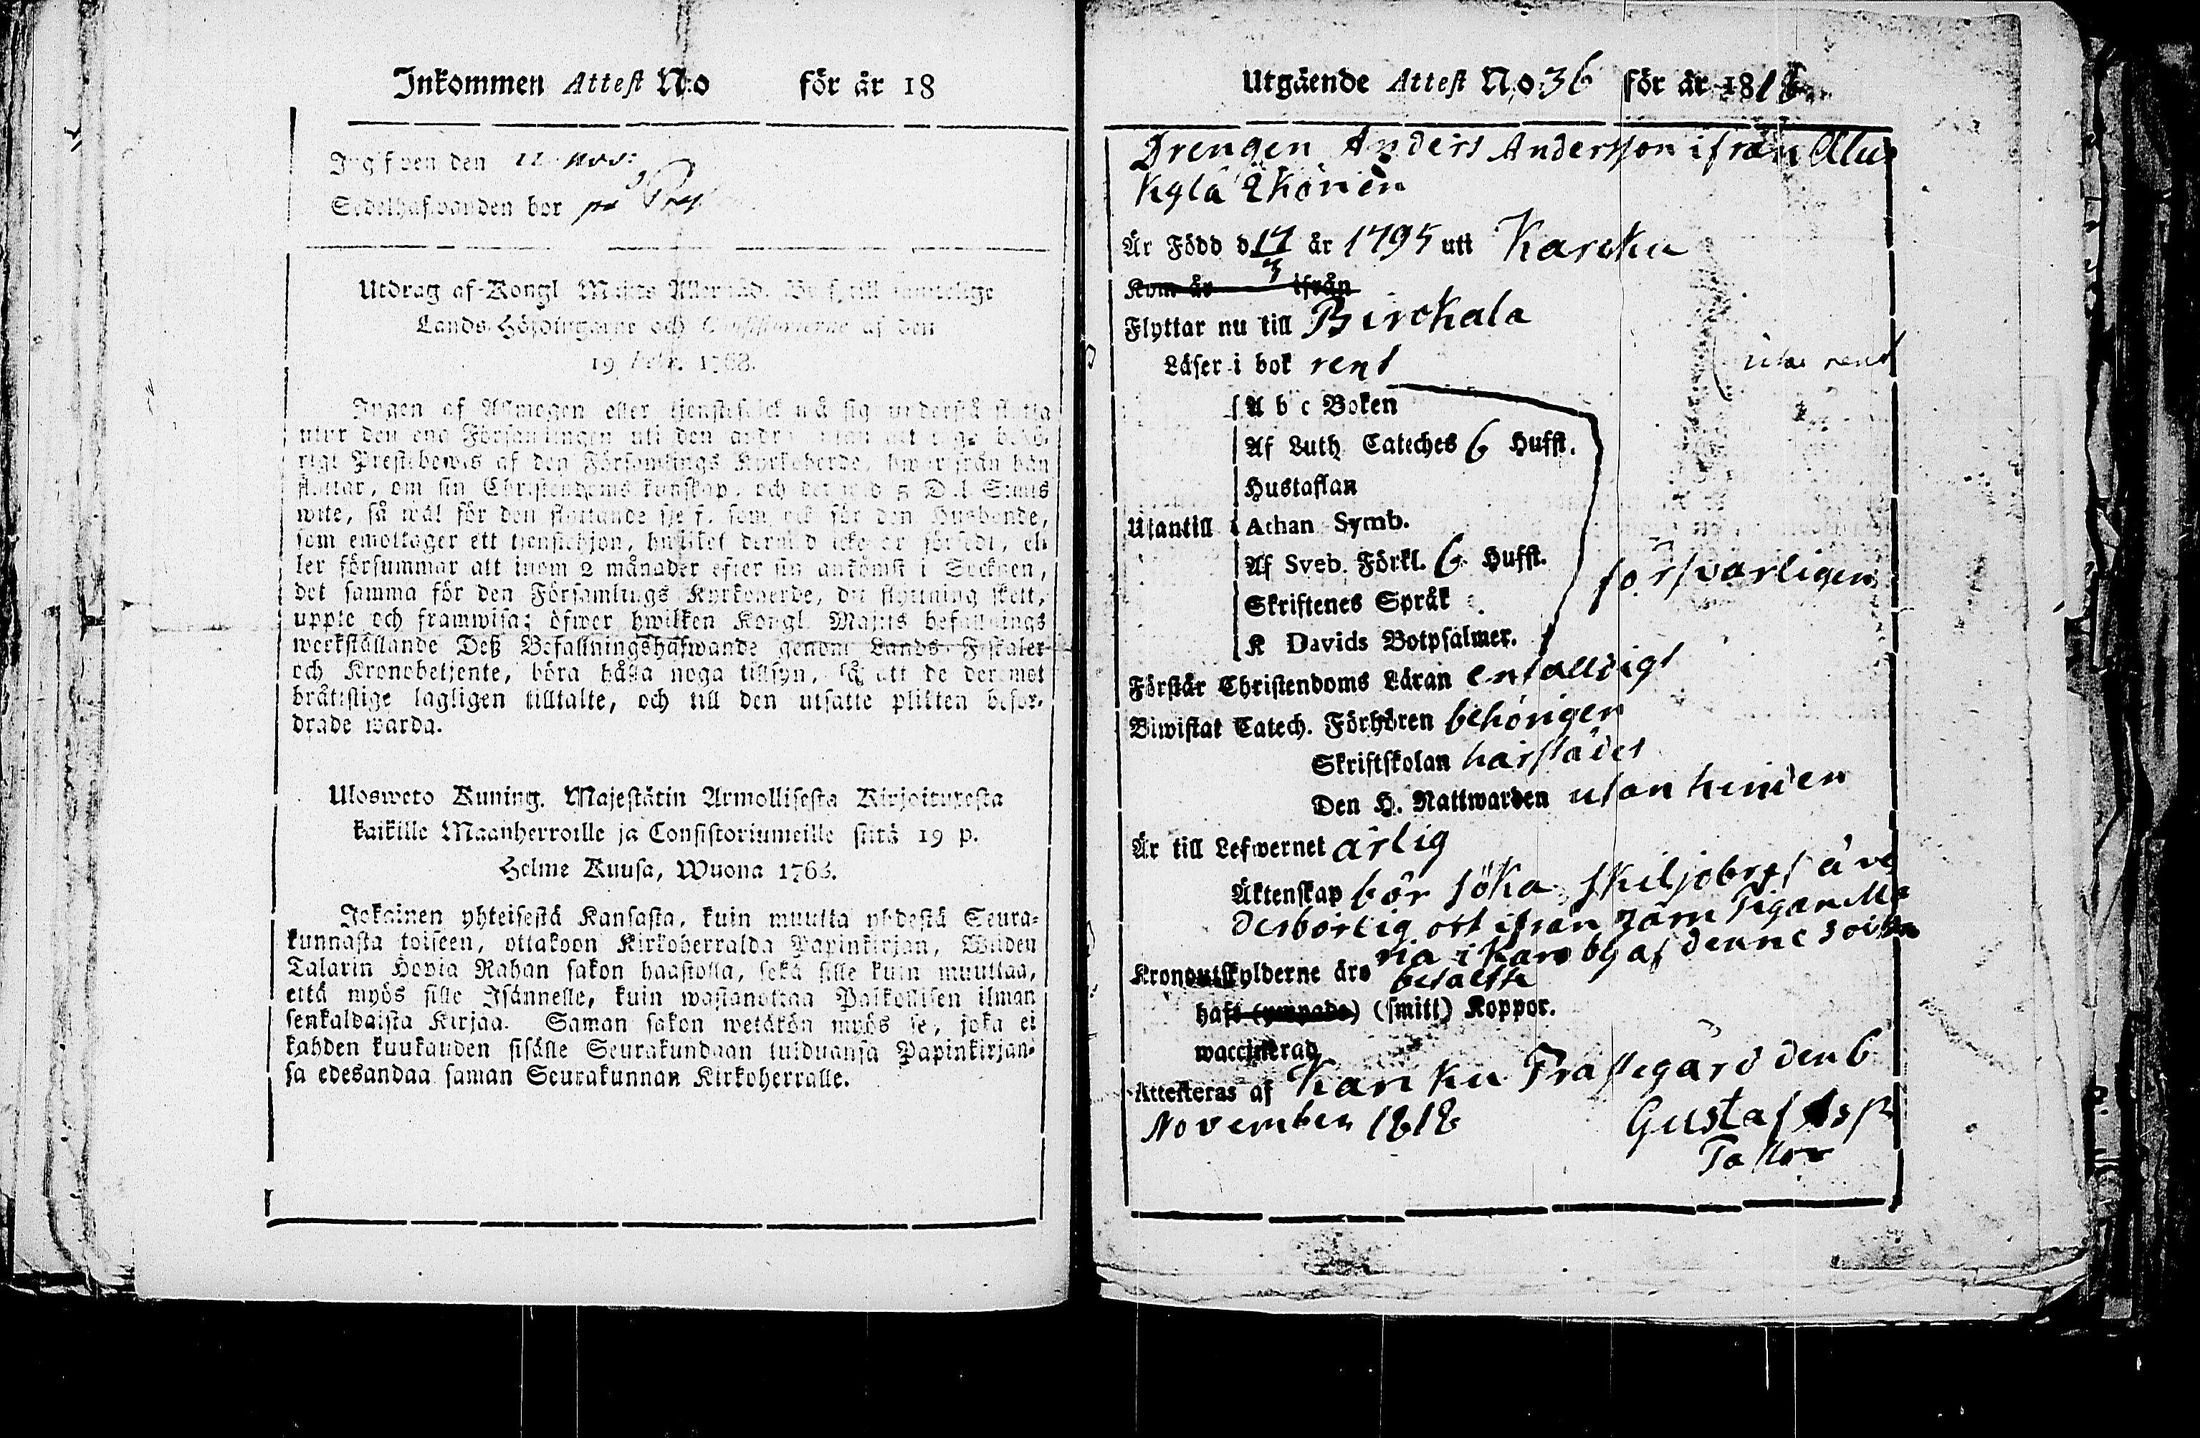 Inkommen Attest N:o för år 18
Ingifven den 22 nov:
Sedelhafwanden bor på
Utdrag af Kongl. Majts Allernåd. Bref till samtelige
Lands-Höfdingarne och Consistorierne af den
19 Febr. 1763.
Ingen af Allmogen eller tjenstefolck må sig understå flytta
utur den ena Församlingen uti den andra, utan att taga behö-
rigt Prestebewis af den Församlings Kyrkoherde, hwarifrån han
flyttar, om sin Christendoms kunskap, och det wid 5 D:l. S:mts
wite, så wäl för den flyttande sjelf, som ock för den Husbonde,
som emottager ett tjenstehjon, hwilket dermed icke är försedt, el-
ler försummar att inom 2 månader efter sin ankomst i Socknen,
det samma för den Församlings Kyrkoherde, dit flyttning skett,
uppte och framwisa; öfwer hwilken Kongl. Majits befallnings
werkställande Deß Befallningshafwande genom Lands-Fiskaler
och Kronobetjente, böra hålla noga tillsyn, så att de deremot
bråttslige lagligen tilltalte, och till den utsatte plikten befor-
drade warda.
Ulosweto Kuning. Majestätin Armollisesta Kirjoituxesta
kaikille Maanherroille ja Consistoriumeille siitä 19 p.
Helme Kuusa, Wuona 1763.
Jokainen yhteisestä Kansasta, kuin muutta yhdestä Seura-
kunnasta toiseen, ottakoon Kirkoherralda Papinkirjan, Wiiden
Talarin Hopia Rahan sakon haastolla, sekä sille kuin muuttaa,
että myös sille Isännelle, kuin wastanottaa Palkollisen ilman
senkaldaista Kirjaa. Saman sakon wetäkön myös se, joka ei
kahden kuukauden sisälle Seurakundaan tulduansa Papinkirjan-
sa edesandaa saman Seurakunnan Kirkoherralle.
Utgående Attest N:o 36 för år 1818
Drengen Anders Andersson ifrån
Kylä
Är Född d 17/3 år 1795 uti Karcku
Kom år ifrån
Flyttar nu till Birckala
Läser i bok rent
rent
A b c Boken
Af Luth Cateches 6 Hufst.
Hustaflan
Utantill Athan. Symb.
Af Sveb. Förkl. 6 Hufst.
försvarligen
Skriftenes Språk
K Davids Botpsalmer.
Förstår Christendoms Läran enfalldigt
Biwistat Catech. Förhören behörigen
Skriftskolan härstädes
Den H. Nattwarden utan hinder
Är till Lefwernet ärlig
Äktenskap bör söka skiljobref
ifrån Pigan Ma
ria i by af denne
Kronoutskylderne äro betalte
haft (ympade) (smitt) Koppor.
waccinerad
Attesteras af Karcku Prästegård den 6
November 1818
Gustaf Asp
Pastor